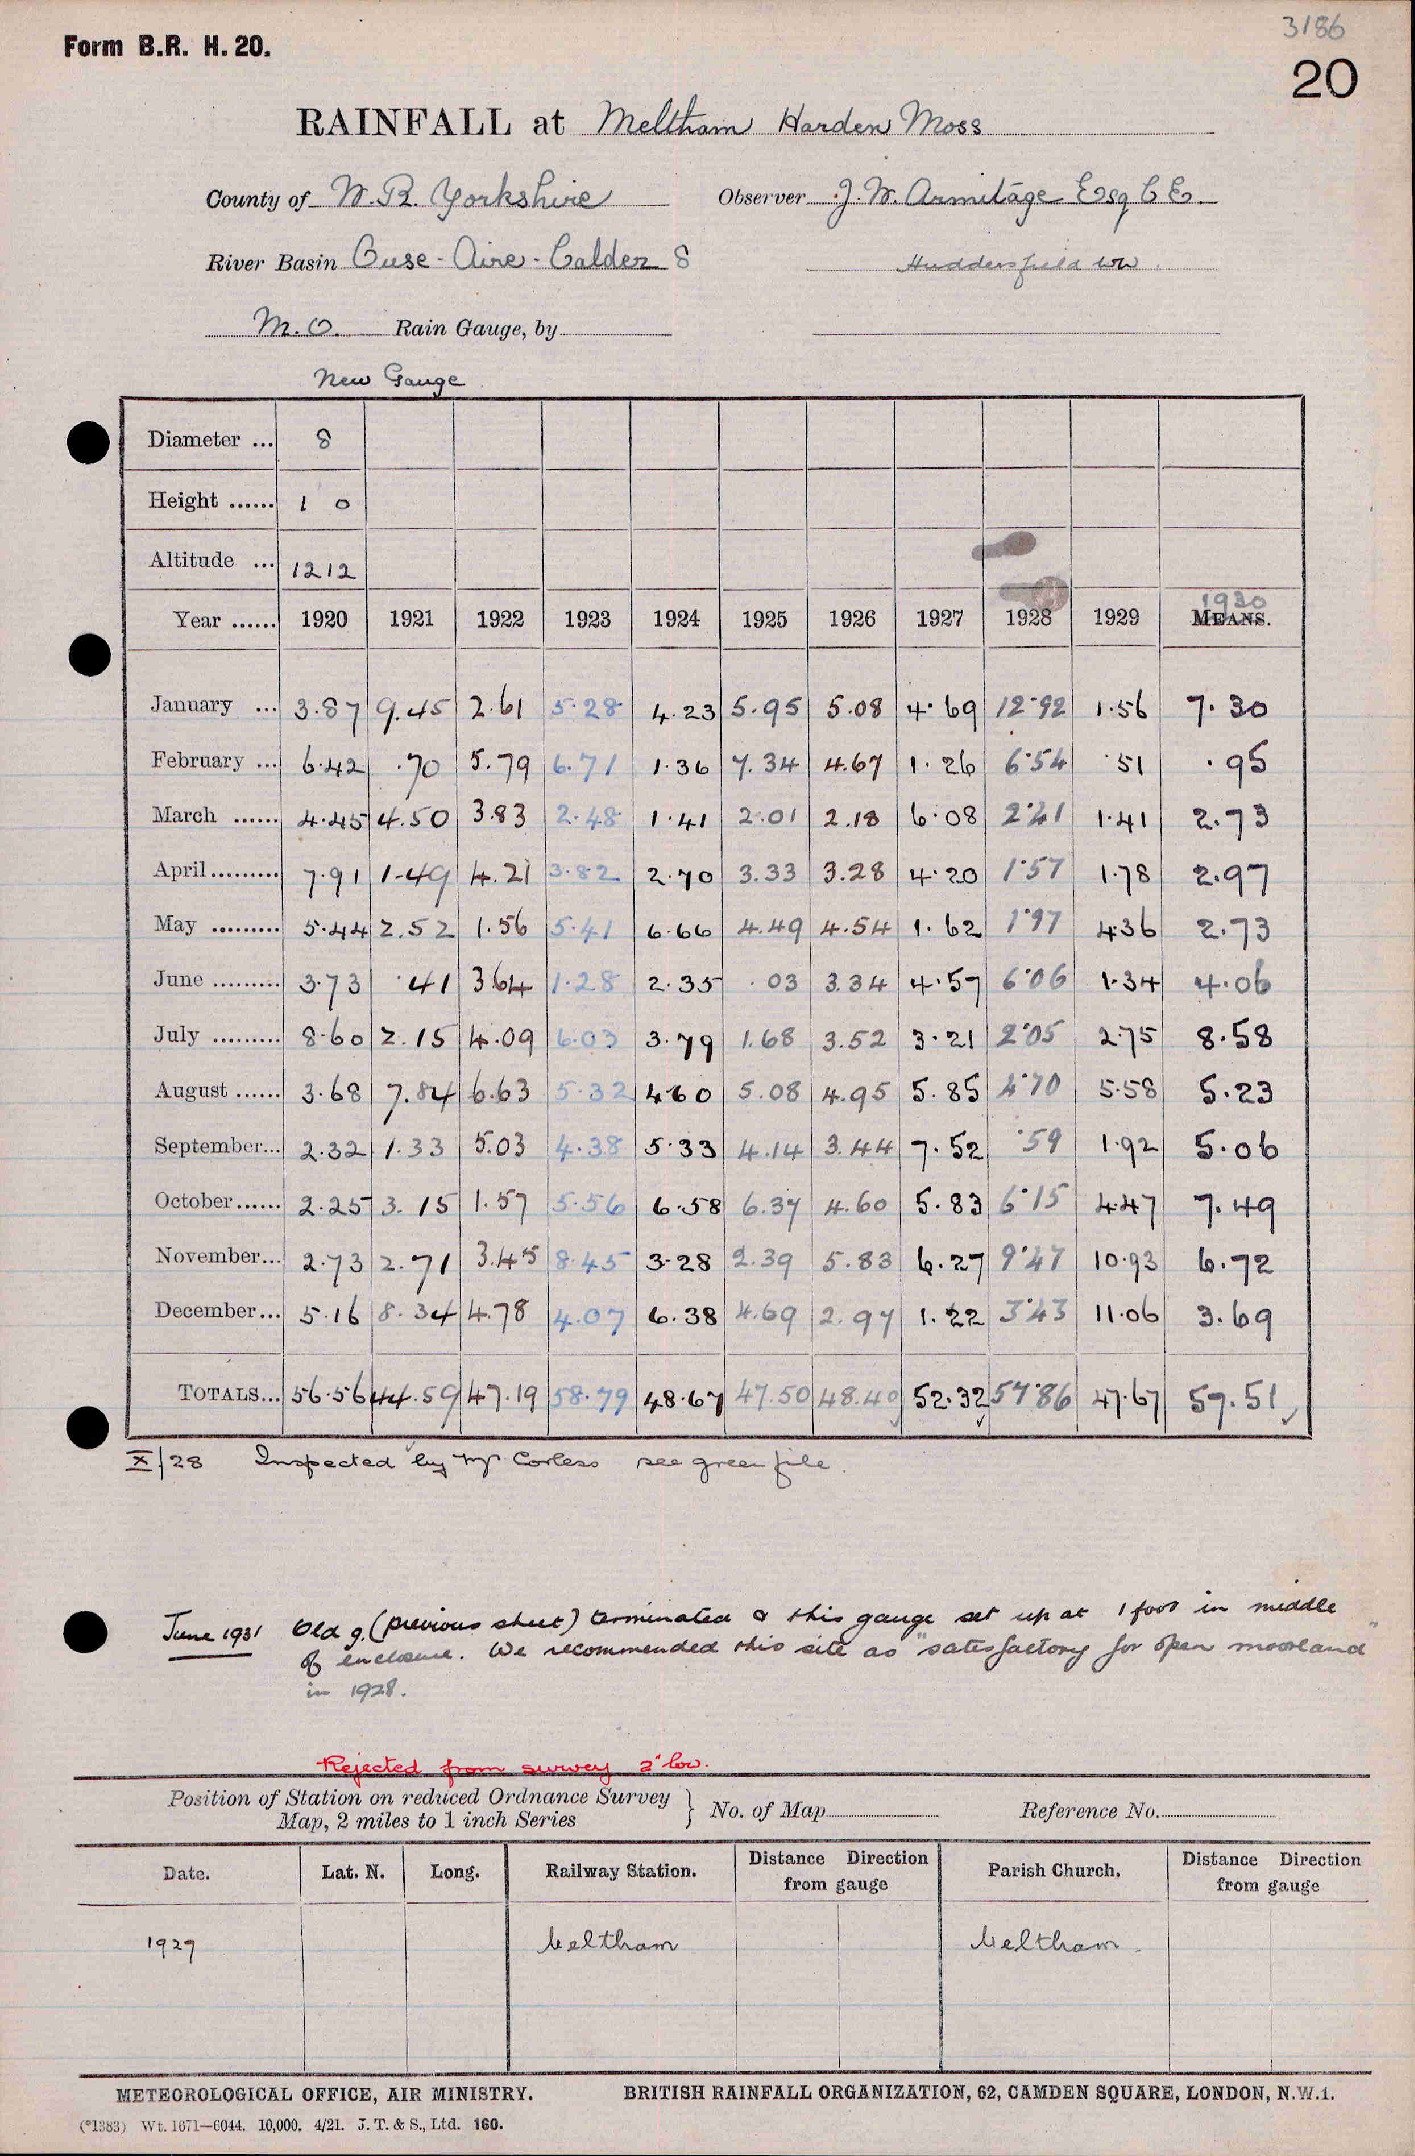 3186
Form B.R. H. 20.
20
RAINFALL at Meltham Harden Moss
County of W.R. Yorkshire Observer J. W. Armitage Esq C E.
River Basin Ouse - Aire - Calder 8 Huddersfield WW.
M.O. Rain Gauge, by
New Gauge
Diameter ... 8
Height ...... 1 0
Altitude ... 1212
1930
Year ...... 1920 1921 1922 1923 1924 1925 1926 1927 1928 1929 MEANS.
January ... 3.87 9.45 2.61 5.28 4.23 5.95 5.08 4.69 12.92 1.56 7.30
February ... 6.42 .70 5.79 6.71 1.36 7.34 4.67 1.26 6.54 .51 .95
March ...... 4.45 4.50 3.83 2.48 1.41 2.01 2.18 6.08 2.41 1.41 2.73
April ......... 7.91 1.49 4.21 3.82 2.70 3.33 3.28 4.20 1.57 1.78 2.97
May ......... 5.44 2.52 1.56 5.41 6.66 4.49 4.54 1.62 1.97 4.36 2.73
June ......... 3.73 .41 3.64 1.28 2.35 .03 3.34 4.57 6.06 1.34 4.06
July ......... 8.60 2.15 4.09 6.03 3.79 1.68 3.52 3.21 2.05 2.75 8.58
August ...... 3.68 7.84 6.63 5.32 4.60 5.08 4.95 5.85 4.70 5.58 5.23
September... 2.32 1.33 5.03 4.38 5.33 4.14 3.44 7.52 .59 1.92 5.06
October...... 2.25 3.15 1.57 5.56 6.58 6.37 4.60 5.83 6.15 4.47 7.49
November... 2.73 2.71 3.45 8.45 3.28 2.39 5.83 6.27 9.47 10.93 6.72
December... 5.16 8.34 4.78 4.07 6.38 4.69 2.97 1.22 3.43 11.06 3.69
TOTALS... 56.56 44.59 47.19 58.79 48.67 47.50 48.40 52.32 57.86 47.67 57.51
X/28 Inspected by Mr Corless see green file.
June 1931 Old g. (previous sheet) terminated & this gauge set up at 1 foot in middle
of enclosure. We recommended this site as "satisfactory for open moorland"
in 1928.
Rejected from survey 2" low.
Position of Station on reduced Ordnance Survey
Map, 2 miles to 1 inch Series } No. of Map Reference No.
Date. Lat. N. Long. Railway Station. Distance Direction from gauge Parish Church. Distance Direction from gauge
1927 Meltham Meltham.
METEOROLOGICAL OFFICE, AIR MINISTRY. BRITISH RAINFALL ORGANIZATION, 62, CAMDEN SQUARE, LONDON, N.W.1.
(*1383) Wt. 1671—6044. 10,000. 4/21. J. T. & S., Ltd. 160.